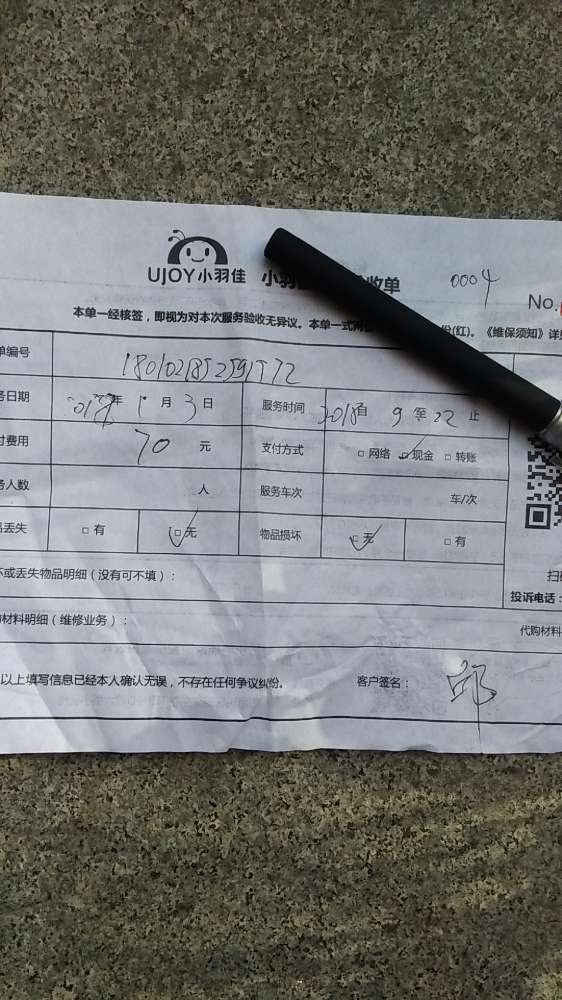 UJOY小羽佳 小羽 收单 0004
No.
本单一经核签，即视为对本次服务验收无异议。本单一式两 份(红)。《维保须知》详见
单编号
务日期 年 1月3日 服务时间 2018自9至22止
付费用 70元 支付方式 □网络 ☑现金 □转账
务人数 人 服务车次 车/次
品丢失 □有 ☑无 物品损坏 ☑无 □有
坏或丢失物品明细（没有可不填）： 扫码
投诉电话：
购材料明细（维修业务）： 代购材料
以上填写信息已经本人确认无误，不存在任何争议纠纷。 客户签名：